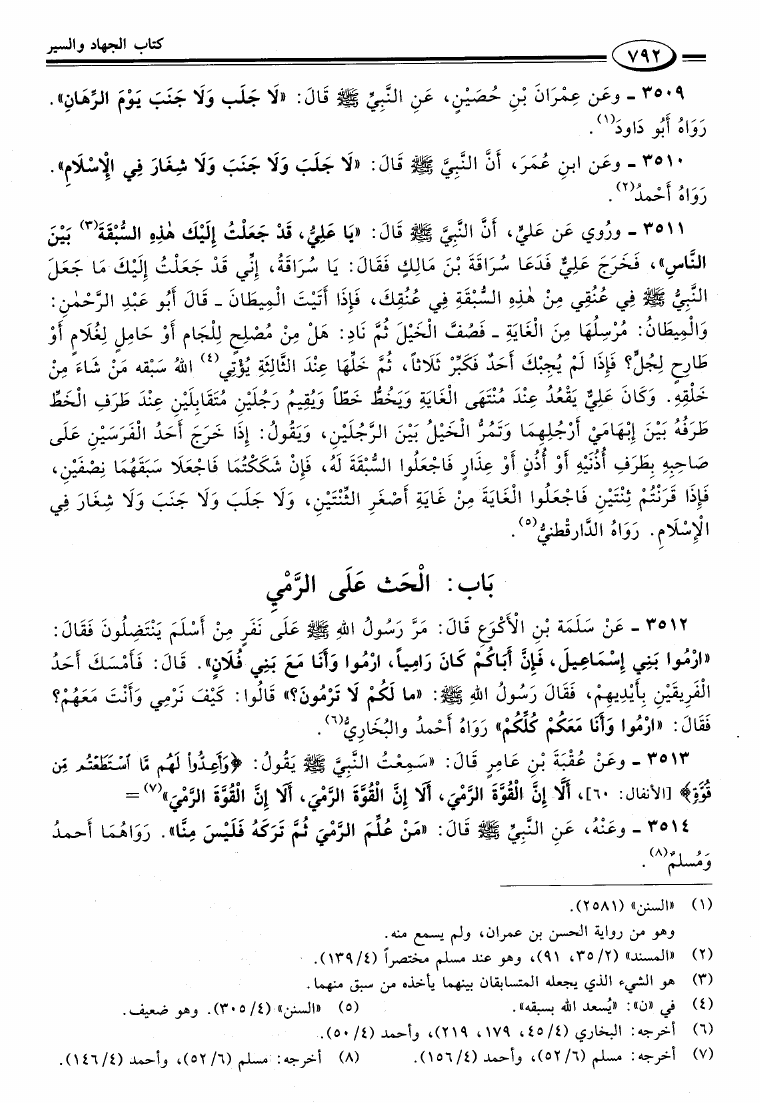 كتاب الجهاد والسير
٧٩٢
٣٥٠٩ ـ وعَن عِمْرَانَ بْنِ حُصَيْنٍ، عَنِ النَّبِيِّ ﷺ قَالَ: «لَا جَلَب وَلَا جَنَبَ يَوْمَ الرِّهَانِ».
رَوَاهُ أَبُو دَاودَ(١).
٣٥١٠ ـ وعَن ابنِ عُمَرَ، أَنَّ النَّبِيَّ ﷺ قَالَ: «لَا جَلَبَ وَلَا جَنَبَ وَلَا شِغَارَ فِي الإِسْلَامِ».
رَوَاهُ أَحْمدُ(٢).
٣٥١١ ـ ورُوي عَن عَليٍّ، أَنَّ النَّبِيَّ ﷺ قَالَ: «يَا عَلِيُّ، قَدْ جَعَلْتُ إِلَيْكَ هٰذِهِ السُّبْقَةَ(٣) بَيْنَ
النَّاسِ»، فَخَرَجَ عَلِيٌّ فَدَعَا سُرَاقَةَ بْنَ مَالِكٍ فَقَالَ: يَا سُرَاقَةُ، إِنِّي قَدْ جَعَلْتُ إِلَيْكَ مَا جَعَلَ
النَّبِيُّ ﷺ فِي عُنُقِي مِنْ هٰذِهِ السُّبْقَةِ فِي عُنُقِكَ، فَإِذَا أَتَيْتَ الْمِيطَانَ ـ قَالَ أَبُو عَبْدِ الرَّحْمٰنِ:
وَالْمِيطَانُ: مُرْسِلُهَا مِنَ الْغَايَةِ ـ فَصُفَّ الْخَيْلَ ثُمَّ نَادِ: هَلْ مِنْ مُصْلِحٍ لِلْجَامِ أَوْ حَامِلٍ لِغُلَامٍ أَوْ
طَارِحٍ لِجُلٍّ؟ فَإِذَا لَمْ يُجِبْكَ أَحَدٌ فَكَبِّرْ ثَلَاثاً، ثُمَّ خَلِّهَا عِنْدَ الثَّالِثَةِ يُؤْتِي(٤) اللهُ سَبْقه مَنْ شَاءَ مِنْ
خَلْقِهِ. وَكَانَ عَلِيٌّ يَقْعُدُ عِنْدَ مُنْتَهَى الْغَايَةِ وَيَخُطُّ خَطّاً وَيُقِيمُ رَجُلَيْنِ مُتَقَابِلَيْنِ عِنْدَ طَرَفِ الْخَطِّ
طَرَفُهُ بَيْنَ إِبْهَامَيْ أَرْجُلِهِمَا وَتَمُرُّ الْخَيْلُ بَيْنَ الرَّجُلَيْنِ، وَيَقُولُ: إِذَا خَرَجَ أَحَدُ الْفَرَسَيْنِ عَلَى
صَاحِبِهِ بِطَرَفِ أُذُنَيْهِ أَوْ أُذُنٍ أَوْ عِذَارٍ فَاجْعَلُوا السُّبْقَةَ لَهُ، فَإِنْ شَكَكْتُمَا فَاجْعَلَا سَبَقَهُمَا نِصْفَيْنِ،
فَإِذَا قَرَنْتُمْ ثِنْتَيْنِ فَاجْعَلُوا الْغَايَةَ مِنْ غَايَةِ أَصْغَرِ الثِّنْتَيْنِ، وَلَا جَلَبَ وَلَا جَنَبَ وَلَا شِغَارَ فِي
الْإِسْلَامِ. رَوَاهُ الدَّارقُطنيُّ(٥).
بَاب: الْحَث عَلَى الرَّمْيِ
٣٥١٢ ـ عَنْ سَلَمَةَ بْنِ الْأَكْوَعِ قَالَ: مَرَّ رَسُولُ اللهِ ﷺ عَلَى نَفَرٍ مِنْ أَسْلَمَ يَنْتَضِلُونَ فَقَالَ:
«ارْمُوا بَنِي إِسْمَاعِيلَ، فَإِنَّ أَبَاكُمْ كَانَ رَامِياً، ارْمُوا وَأَنَا مَعَ بَنِي فُلَانٍ». قَالَ: فَأَمْسَكَ أَحَدُ
الْفَرِيقَيْنِ بِأَيْدِيهِمْ، فَقَالَ رَسُولُ اللهِ ﷺ: «ما لَكُمْ لَا تَرْمُونَ؟» قَالُوا: كَيْفَ نَرْمِي وَأَنْتَ مَعَهُمْ؟
فَقَالَ: «ارْمُوا وَأَنَا مَعَكُمْ كُلِّكُمْ» رَوَاهُ أَحْمدُ والبُخَارِيُّ(٦).
٣٥١٣ ـ وعَنْ عُقْبَةَ بْنِ عَامِرٍ قَالَ: «سَمِعْتُ النَّبِيَّ ﷺ يَقُولُ: ﴿وَأَعِدُّوا لَهُم مَّا اسْتَطَعْتُم مِّن
قُوَّةٍ﴾ [الأنفال: ٦٠]، أَلَا إِنَّ الْقُوَّةَ الرَّمْيَ، أَلَا إِنَّ الْقُوَّةَ الرَّمْيَ، أَلَا إِنَّ الْقُوَّةَ الرَّمْيَ»(٧) =
٣٥١٤ ـ وعَنْهُ، عَنِ النَّبِيِّ ﷺ قَالَ: «مَنْ عُلِّمَ الرَّمْيَ ثُمَّ تَرَكَهُ فَلَيْسَ مِنَّا». رَوَاهُمَا أَحمدُ
وَمُسلمٌ(٨).
(١) «السنن» (٢٥٨١).
وهو من رواية الحسن بن عمران، ولم يسمع منه.
(٢) «المسند» (٢/ ٣٥، ٩١)، وهو عند مسلم مختصراً (٤/ ١٣٩).
(٣) هو الشيء الذي يجعله المتسابقان بينهما يأخذه من سبق منهما.
(٤) في «ن»: «يُسعد الله بسبقه». (٥) «السنن» (٤/ ٣٠٥). وهو ضعيف.
(٦) أخرجه: البخاري (٤/ ٤٥، ١٧٩، ٢١٩)، وأحمد (٤/ ٥٠).
(٧) أخرجه: مسلم (٦/ ٥٢)، وأحمد (٤/ ١٥٦). (٨) أخرجه: مسلم (٦/ ٥٢)، وأحمد (٤/ ١٤٦).